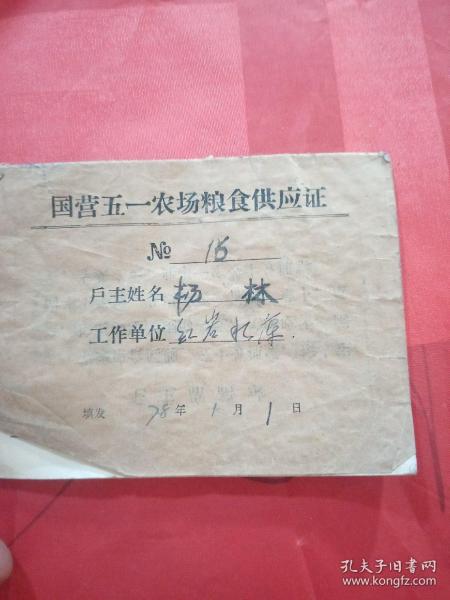 国营五一农场粮食供应证
№ 15
户主姓名 杨 林
工作单位 红岩水库
填发 78年1月1日
孔夫子旧书网
www.kongfz.com